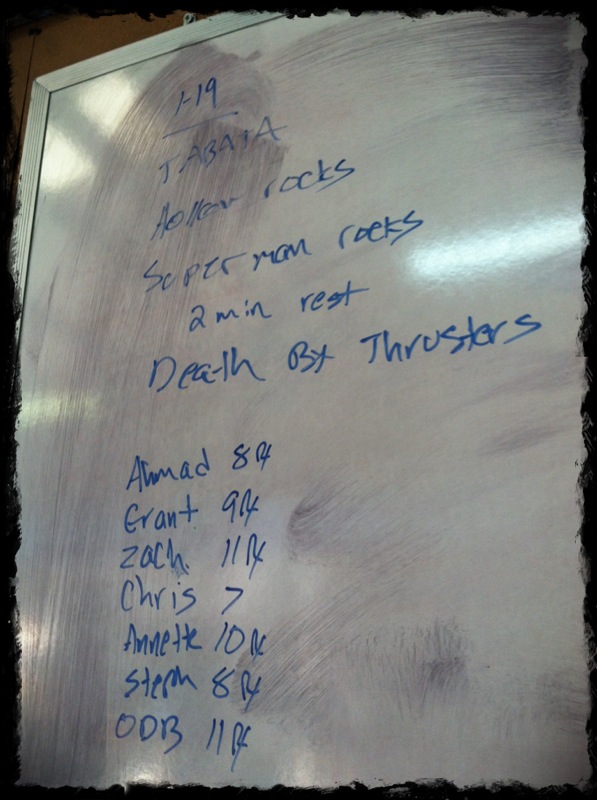 1-19
TABATA
Hollow rocks
Superman rocks
2 min rest
Death By Thrusters
Ahmad 8 Rx
Grant 9 Rx
Zach. 11 Rx
Chris 7
Annette 10 Rx
Steph 8 Rx
ODB 11 Rx